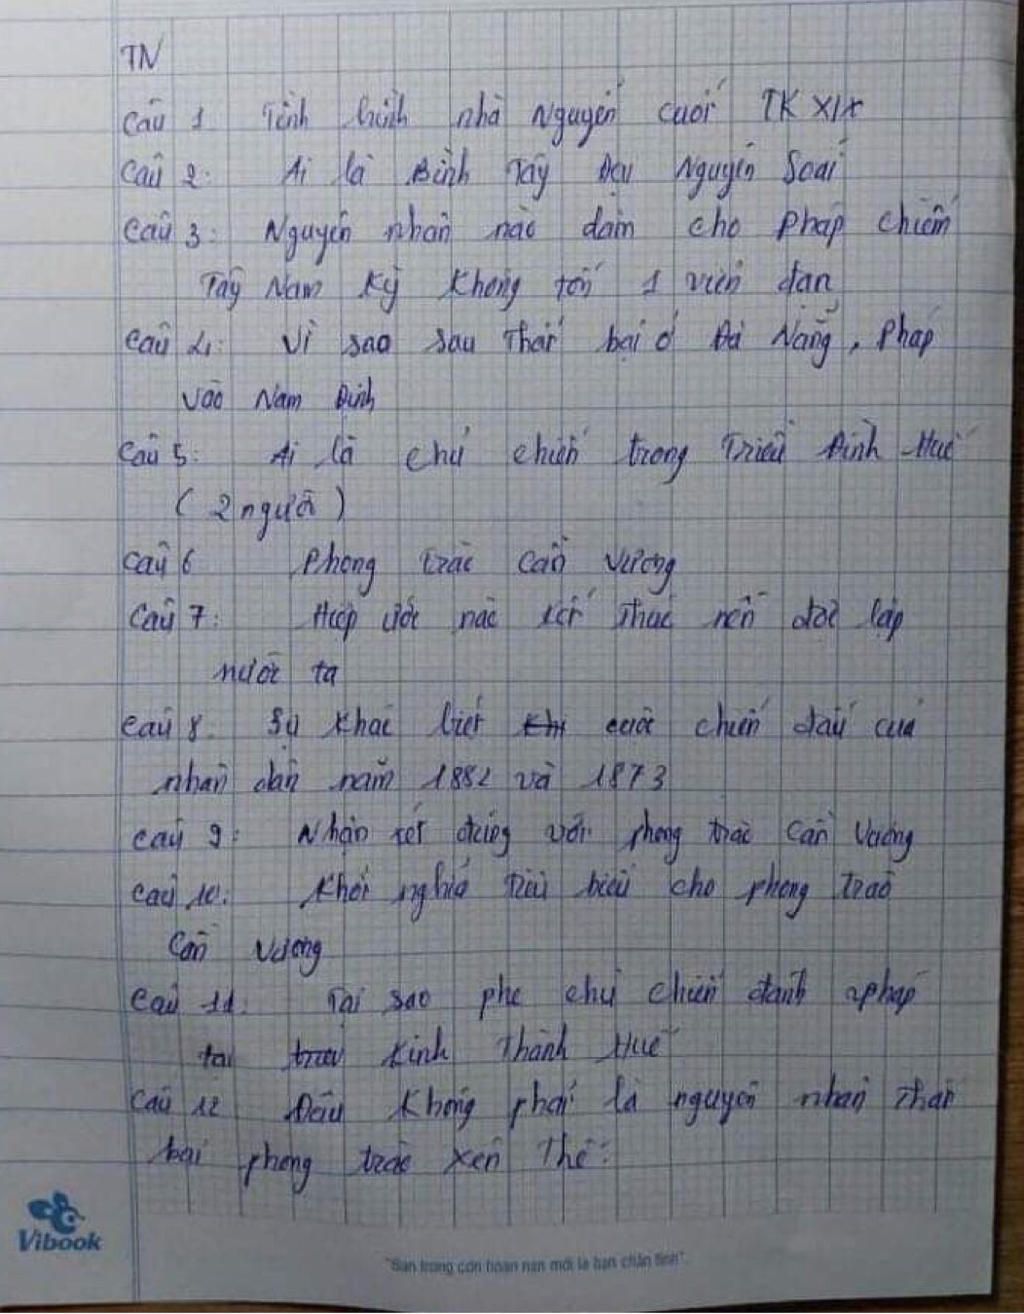 TN
Câu 1 Tình hình nhà Nguyễn cuối TK XIX
Câu 2: Ai là Bình Tây Đại Nguyên Soái
Câu 3: Nguyên nhân nào dẫn cho Pháp chiếm
Tây Nam Kỳ không tốn 1 viên đạn
Câu 4: Vì sao sau thất bại ở Đà Nẵng, Pháp
vào Nam Định
Câu 5: Ai là chủ chiến trong Triều Đình Huế
(2 người)
Câu 6 Phong trào Cần Vương
Câu 7: Hiệp ước nào kết thúc nền độc lập
nước ta
Câu 8: Sự khác biệt cuộc chiến đấu của
nhân dân năm 1882 và 1873
Câu 9: Nhận xét đúng với phong trào Cần Vương
Câu 10: Khởi nghĩa tiêu biểu cho phong trào
Cần Vương
Câu 11: Tại sao phe chủ chiến đánh Pháp
tại Kinh Thành Huế
Câu 12 Đâu không phải là nguyên nhân thất
bại phong trào Yên Thế:
Vibook
"Bạn trong cơn hoạn nạn mới là bạn chân tình".